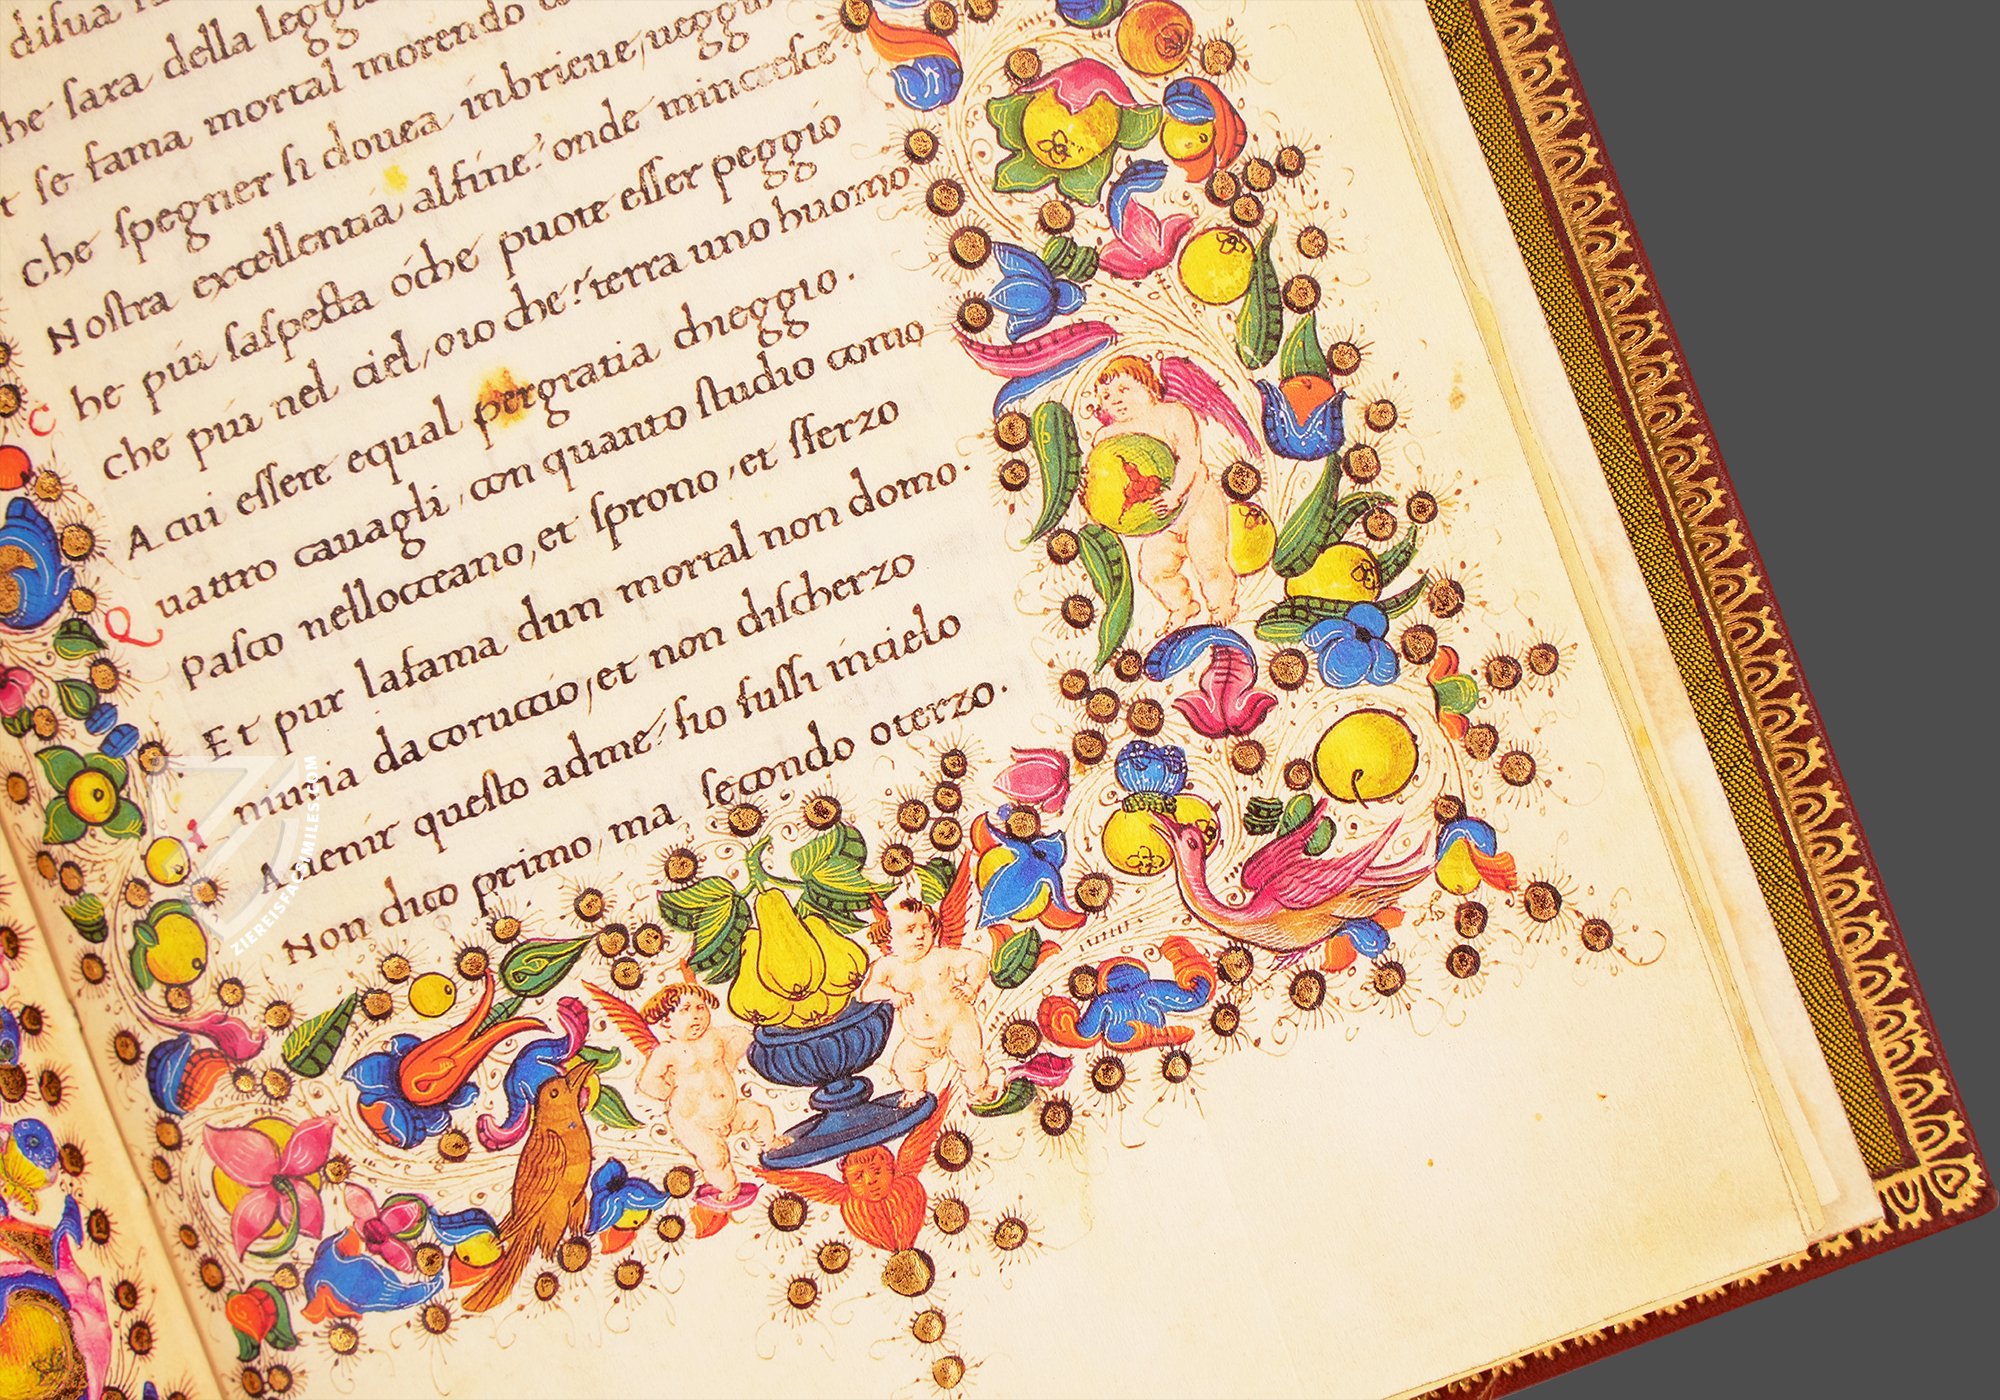 disua
he sara della leggia
t se fama mortal morendo
che spegner si douea inbrieue, ueggio
Nostra excellentia alfine: onde mincresce
he piu saspetta o che puote esser peggio
Che piu nel ciel, o io che terra uno huomo
A cui essere equal per gratia chieggio.
Quattro cauagli, con quanto studio como
Pasco nelloceano, et sprono, et sferzo
Et pur lafama dun mortal non domo.
iniuria da coruccio, et non discherzo
Auenir questo adme: sio fussi incielo
Non dico primo, ma secondo o terzo.
ZIEREISFACSIMILES.COM